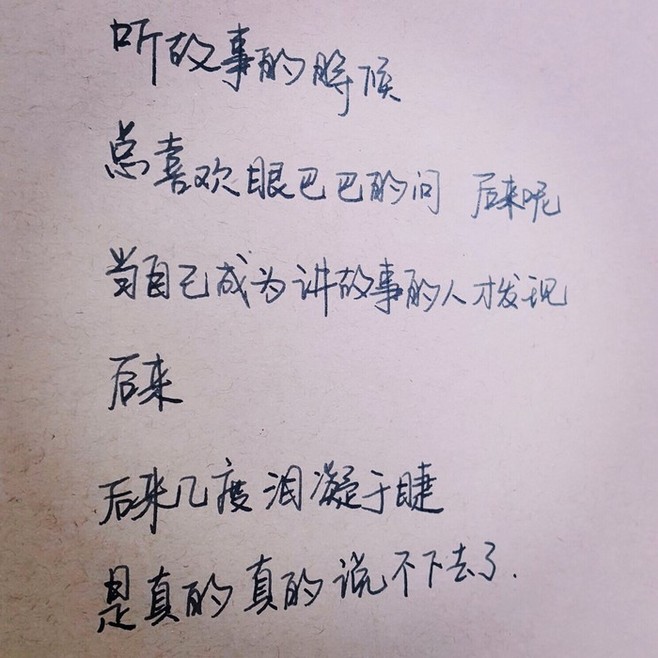 听故事的時候
总喜欢眼巴巴的问 后来呢
当自己成为讲故事的人才发现
后来
后来几度泪凝于睫
是真的真的说不下去了.